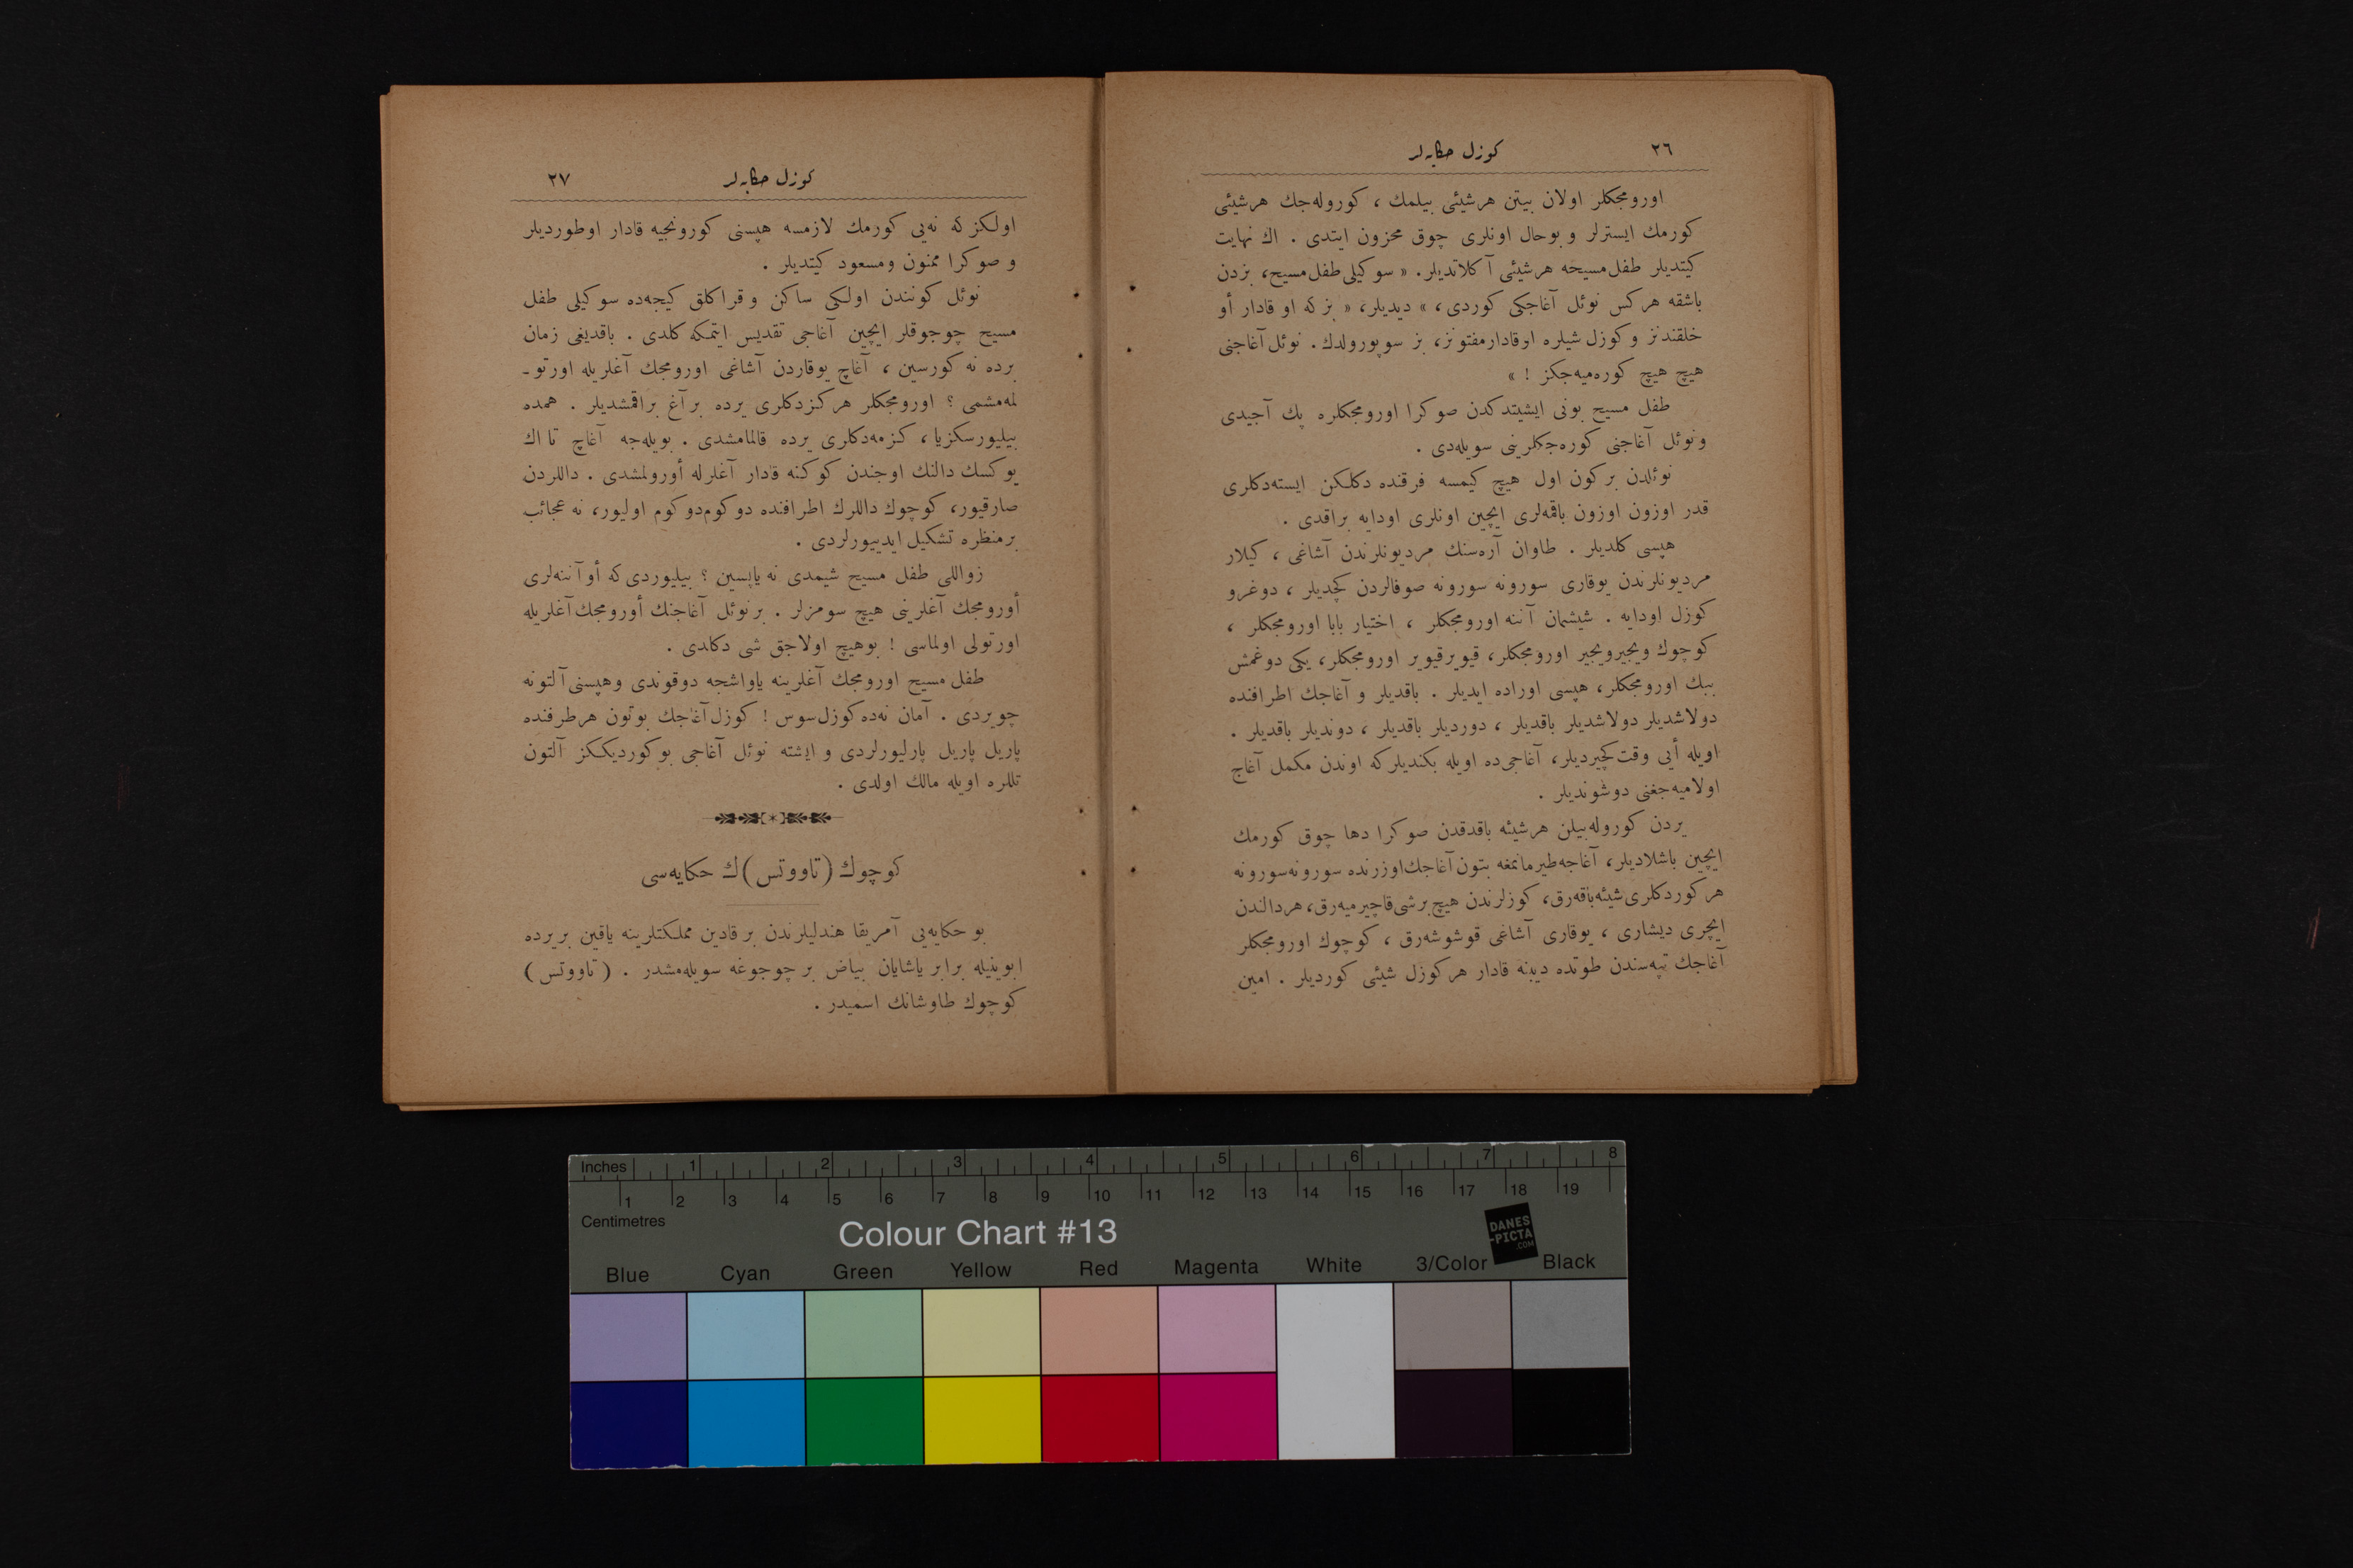 ٢٦
كوزل حكايه‌لر
اورومجكلر اولان بيتن هرشيئى بيلمك ، كوروله‌جك هرشيئى
كورمك ايسترلر و بوحال اونلرى چوق محزون ايتدى . اك نهايت
كيتديلر طفل مسيحه هرشيئى آكلاتديلر. « سوكيلى طفل مسيح، بزدن
باشقه هركس نوئل آغاجكى كوردى، » ديديلر، « بز كه او قادار أو
خلقندنز و كوزل شيلره اوقادار مفتونز، بز سوپورولدك. نوئل آغاجنى
هيچ هيچ كوره‌ميه‌جكز ! »
طفل مسيح بونى ايشيتدكدن صوكرا اورومجكلره پك آجيدى
ونوئل آغاجنى كوره‌جكلرينى سويله‌دى .
نوئلدن بركون اول هيچ كيمسه فرقنده دكلكن ايسته‌دكلرى
قدر اوزون اوزون باقمه‌لرى ايچين اونلرى اودايه براقدى .
هپسى كلديلر . طاوان آره‌سنك مرديونلرندن آشاغى ، كيلار
مرديونلرندن يوقارى سورونه سورونه صوفالردن كچديلر ، دوغرو
كوزل اودايه . شيشمان آننه اورومجكلر ، اختيار بابا اورومجكلر ،
كوچوك ويجيرويجير اورومجكلر، قيويرقيوير اورومجكلر، يكى دوغمش
ببك اورومجكلر، هپسى اوراده ايديلر . باقديلر و آغاجك اطرافنده
دولاشديلر دولاشديلر باقديلر ، دورديلر باقديلر ، دونديلر باقديلر .
اويله أيى وقت كچيرديلر، آغاجى‌ده اويله بكنديلركه اوندن مكمل آغاج
اولاميه‌جغنى دوشونديلر .
يردن كوروله‌بيلن هرشيئه باقدقدن صوكرا دها چوق كورمك
ايچين باشلاديلر، آغاجه‌طيرمانمغه بتون آغاجك‌اوزرنده سورونه‌سورونه
هركوردكلرى‌شيئه‌باقه‌رق، كوزلرندن هيچ‌برشى‌قاچيرميه‌رق، هردالندن
ايچرى ديشارى ، يوقارى آشاغى قوشوشه‌رق ، كوچوك اورومجكلر
آغاجك تپه‌سندن طوتده ديبنه قادار هركوزل شيئى كورديلر . امين
كوزل حكايه‌لر
٢٧
اولكزكه نه‌يى كورمك لازمسه هپسنى كورونجيه قادار اوطورديلر
و صوكرا ممنون ومسعود كيتديلر .
نوئل كونندن اولكى ساكن و قراكلق كيجه‌ده سوكيلى طفل
مسيح چوجوقلر ايچين آغاجى تقديس ايتمكه كلدى . باقديغى زمان
برده نه كورسين ، آغاچ يوقاردن آشاغى اورومجك آغلريله اورتو ـ
لمه‌مشمى ؟ اورومجكلر هركزدكلرى يرده برآغ براقمشديلر . همده
بيليورسكزيا، كزمه‌دكلرى يرده قالمامشدى . بويله‌جه آغاچ تا اك
يوكسك دالنك اوجندن كوكنه قادار آغلرله أورولمشدى . داللردن
صارقيور، كوچوك داللرك اطرافنده دوكوم‌دوكوم اوليور، نه عجائب
برمنظره تشكيل ايديیورلردى .
زواللى طفل مسيح شيمدى نه ياپسين ؟ بيليوردى‌كه أوآننه‌لرى
أورومجك آغلرينى هيچ سومزلر . برنوئل آغاجنك أورومجك‌آغلريله
اورتولى اولماسى ! بوهيچ اولاجق شى دكلدى .
طفل مسيح اورومجك آغلرينه ياواشجه دوقوندى وهپسنى‌آلتونه
چويردى . آمان نه‌ده كوزل سوس ! كوزل‌آغاجك بوتون هرطرفنده
پاريل پاريل پارليورلردى و ايشته نوئل آغاجى بوكورديككز آلتون
تللره اويله مالك اولدى .
كوچوك (تاووتس)ك حكايه‌سى
بو حكايه‌يى آمريقا هندليلرندن برقادين مملكتلرينه ياقين بريرده
ابوينيله برابر ياشايان بياض برچوجوغه سويله‌مشدر . (تاووتس)
كوچوك طاوشانك اسميدر .
Inches 1 2 3 4 5 6 7 8
1 2 3 4 5 6 7 8 9 10 11 12 13 14 15 16 17 18 19
Centimetres
Colour Chart #13
DANES
-PICTA
.COM
Blue Cyan Green Yellow Red Magenta White 3/Color Black